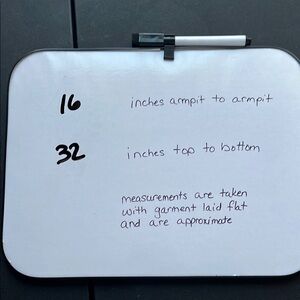 16 inches armpit to armpit
32 inches top to bottom
measurements are taken
with garment laid flat
and are approximate